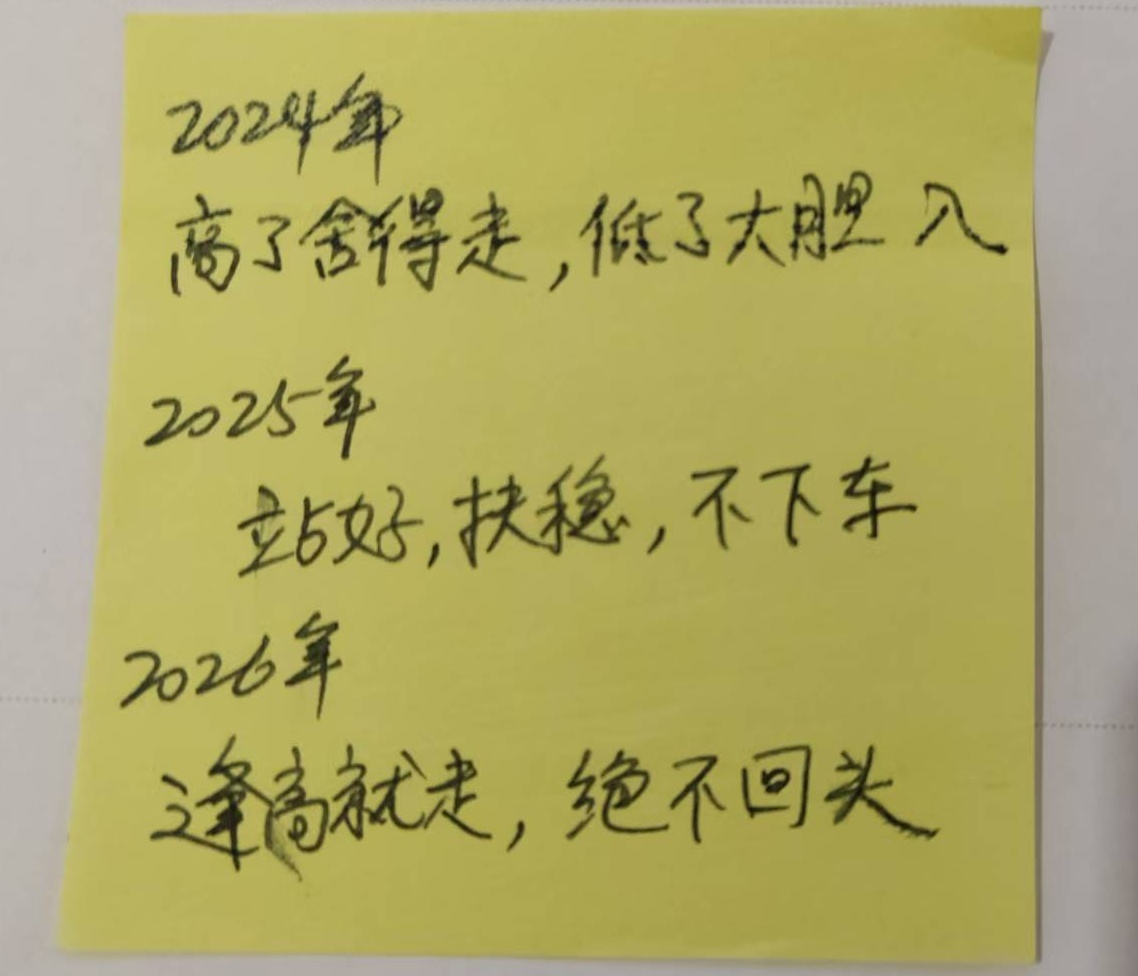 2024年
高了舍得走,低了大胆入
2025年
站好,扶稳,不下车
2026年
逢高就走,绝不回头